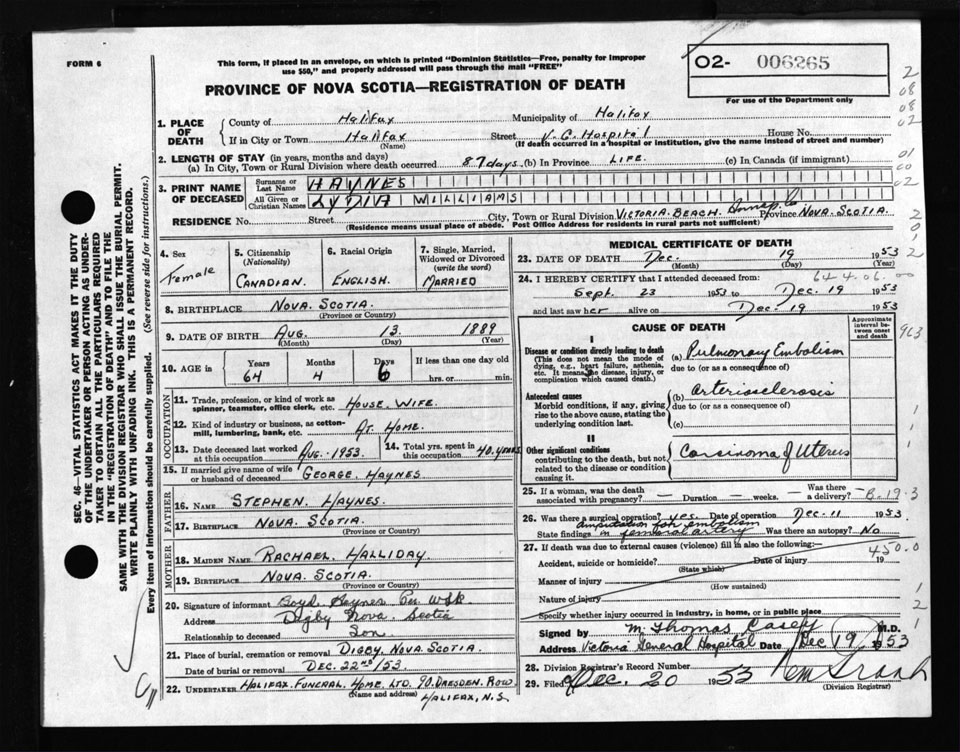 FORM 6
This form, if placed in an envelope, on which is printed "Dominion Statistics—Free, penalty for improper
use $50," and properly addressed will pass through the mail "FREE"
O2- 006265
PROVINCE OF NOVA SCOTIA—REGISTRATION OF DEATH
For use of the Department only
1. PLACE OF DEATH
County of Halifax Municipality of Halifax
If in City or Town Halifax Street V. G. Hospital House No.
(Name) (If death occurred in a hospital or institution, give the name instead of street and number)
2. LENGTH OF STAY (in years, months and days)
(a) In City, Town or Rural Division where death occurred 87 days (b) In Province LIFE. (c) In Canada (if immigrant)
3. PRINT NAME OF DECEASED
Surname or Last Name HAYNES
All Given or Christian Names LYDIA WILLIAMS
RESIDENCE No. Street City, Town or Rural Division VICTORIA BEACH Annap. Co Province NOVA SCOTIA.
(Residence means usual place of abode. Post Office Address for residents in rural parts not sufficient)
4. Sex Female
5. Citizenship (Nationality) CANADIAN.
6. Racial Origin ENGLISH.
7. Single, Married, Widowed or Divorced (write the word) MARRIED
8. BIRTHPLACE NOVA. SCOTIA.
(Province or Country)
9. DATE OF BIRTH AUG. 13. 1889
(Month) (Day) (Year)
10. AGE in Years 64 Months 4 Days 6 If less than one day old
hrs. or min.
OCCUPATION
11. Trade, profession, or kind of work as
spinner, teamster, office clerk, etc. HOUSE. WIFE.
12. Kind of industry or business, as cotton-
mill, lumbering, bank, etc. AT HOME.
13. Date deceased last worked at this occupation AUG. 1953.
14. Total yrs. spent in this occupation 40. YEARS
15. If married give name of wife
or husband of deceased GEORGE. HAYNES
FATHER
16. Name STEPHEN. HAYNES.
17. Birthplace NOVA. SCOTIA.
(Province or Country)
MOTHER
18. Maiden Name RACHAEL. HALLIDAY.
19. Birthplace NOVA. SCOTIA.
(Province or Country)
20. Signature of informant Boyd. Haynes Per
Address Digby Nova. Scotia
Relationship to deceased Son.
21. Place of burial, cremation or removal DIGBY, NOVA. SCOTIA.
Date of burial or removal DEC. 22nd/53.
22. UNDERTAKER HALIFAX. FUNERAL. HOME. LTD. 90. DRESDEN. ROW.
(Name and address) HALIFAX, N.S.
MEDICAL CERTIFICATE OF DEATH
23. DATE OF DEATH Dec. 19 1953
(Month) (Day) (Year)
24. I HEREBY CERTIFY that I attended deceased from: 64 4.06.00
Sept. 23 1953 to Dec. 19 1953
and last saw her alive on Dec. 19 1953
CAUSE OF DEATH
Approximate interval between onset and death
I
Disease or condition directly leading to death
(This does not mean the mode of dying, e.g., heart failure, asthenia, etc. It means the disease, injury, or complication which caused death.)
(a) Pulmonary Embolism
due to (or as a consequence of)
Antecedent causes
Morbid conditions, if any, giving rise to the above cause, stating the underlying condition last.
(b) Arteriosclerosis
due to (or as a consequence of)
(c)
II
Other significant conditions
contributing to the death, but not related to the disease or condition causing it.
Carsinoma of Uterus
25. If a woman, was the death
associated with pregnancy? — Duration — weeks. Was there a delivery?
26. Was there a surgical operation? yes. Date of operation Dec. 11 1953.
amputation for embolism
State findings in femoral artery Was there an autopsy? No
27. If death was due to external causes (violence) fill in also the following:—
450.0
Accident, suicide or homicide? Date of injury 19
(State which)
Manner of injury
(How sustained)
Nature of injury
Specify whether injury occurred in industry, in home, or in public place
Signed by M. Thomas Casey M.D.
Address Victoria General Hospital Date Dec 19 1953
28. Division Registrar's Record Number
29. Filed Dec. 20 1953
(Division Registrar)
SEC. 46—VITAL STATISTICS ACT MAKES IT THE DUTY
OF THE UNDERTAKER OR PERSON ACTING AS UNDER-
TAKER TO OBTAIN ALL THE PARTICULARS REQUIRED
IN THE "REGISTRATION OF DEATH" AND TO FILE THE
SAME WITH THE DIVISION REGISTRAR WHO SHALL ISSUE THE BURIAL PERMIT.
WRITE PLAINLY WITH UNFADING INK. THIS IS A PERMANENT RECORD.
Every item of information should be carefully supplied. (See reverse side for instructions.)